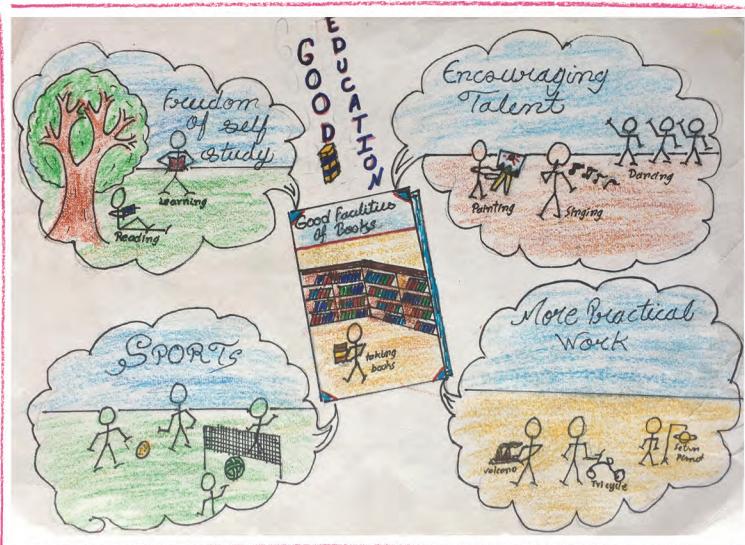 GOOD
EDUCATION
Freedom
of self
study
Learning
Reading
Encouraging
Talent
Painting
Singing
Dancing
Good Facilities
of Books
taking
books
SPORTS
More Practical
Work
volcano
Tricycle
Saturn
Planet